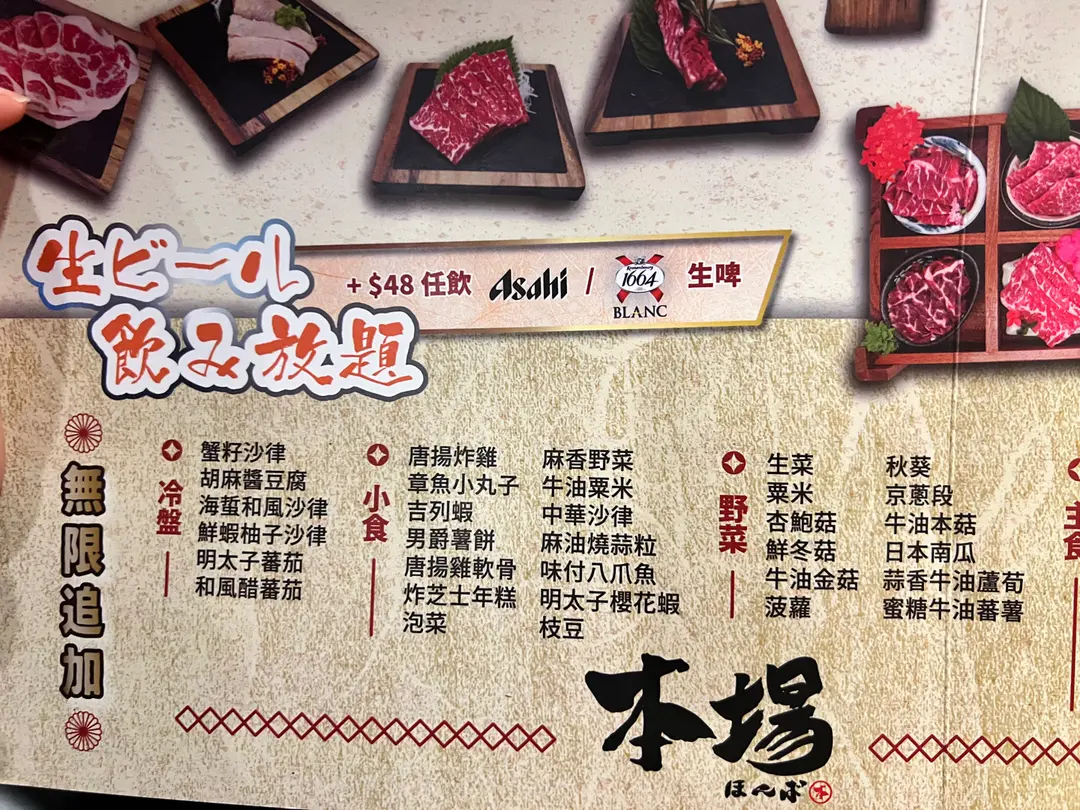 生ビール
飲み放題
+ $48 任飲 Asahi / Kronenbourg 1664 BLANC 生啤
無限追加
冷盤
蟹籽沙律
胡麻醬豆腐
海蜇和風沙律
鮮蝦柚子沙律
明太子蕃茄
和風醋蕃茄
小食
唐揚炸雞
章魚小丸子
吉列蝦
男爵薯餅
唐揚雞軟骨
炸芝士年糕
泡菜
麻香野菜
牛油粟米
中華沙律
麻油燒蒜粒
味付八爪魚
明太子櫻花蝦
枝豆
野菜
生菜
粟米
杏鮑菇
鮮冬菇
牛油金菇
菠蘿
秋葵
京蔥段
牛油本菇
日本南瓜
蒜香牛油蘆筍
蜜糖牛油蕃薯
主食
本場
ほんば